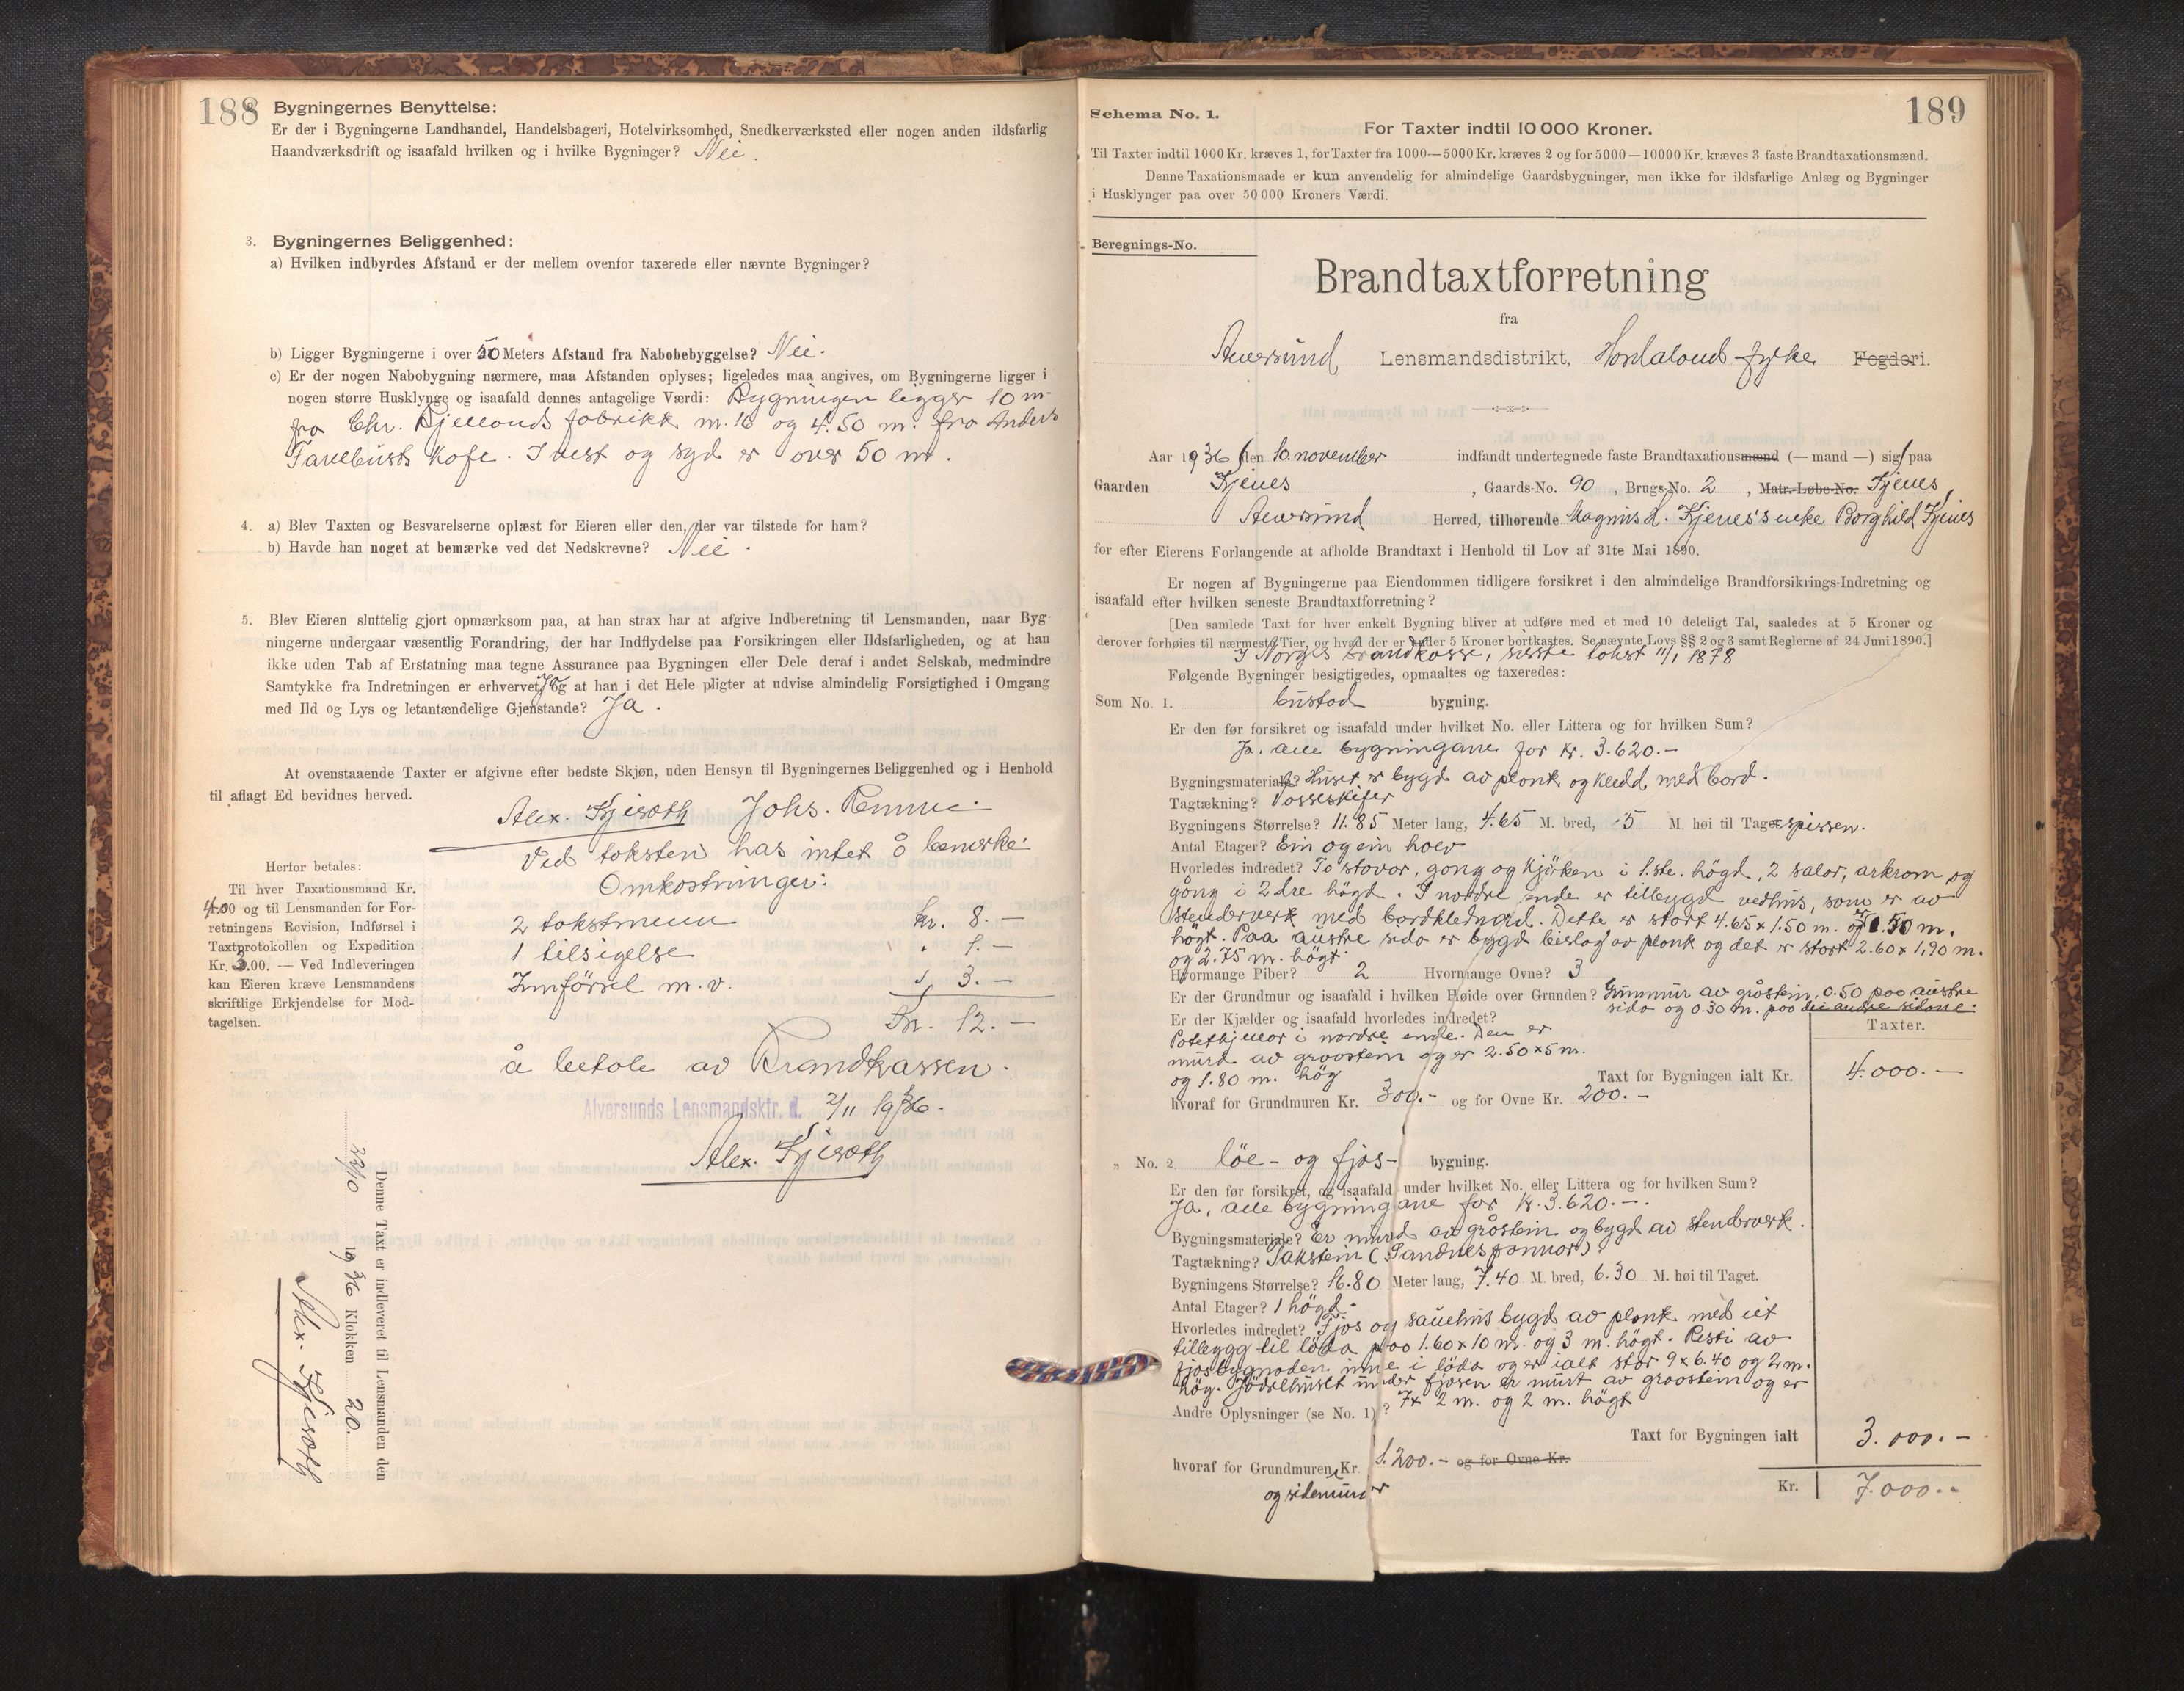 188
Bygningernes Benyttelse:
Er der i Bygningerne Landhandel, Handelsbageri, Hotelvirksomhed, Snedkerværksted eller nogen anden ildsfarlig
Haandværksdrift og isaafald hvilken og i hvilke Bygninger? Nei.
3. Bygningernes Beliggenhed:
a) Hvilken indbyrdes Afstand er der mellem ovenfor taxerede eller nævnte Bygninger?
b) Ligger Bygningerne i over 50 Meters Afstand fra Nabobebyggelse? Nei.
c) Er der nogen Nabobygning nærmere, maa Afstanden oplyses; ligeledes maa angives, om Bygningerne ligger i
nogen større Husklynge og isaafald dennes antagelige Værdi: Bygningen ligger 10 m.
fra Chr. Kjellands fabrikk m. 16 og 4.50 m. fra Anders
kafe. I vest og syd er over 50 m.
4. a) Blev Taxten og Besvarelserne oplæst for Eieren eller den, der var tilstede for ham?
b) Havde han noget at bemærke ved det Nedskrevne? Nei.
5. Blev Eieren sluttelig gjort opmærksom paa, at han strax har at afgive Indberetning til Lensmanden, naar Byg-
ningerne undergaar væsentlig Forandring, der har Indflydelse paa Forsikringen eller Ildsfarligheden, og at han
ikke uden Tab af Erstatning maa tegne Assurance paa Bygningen eller Dele deraf i andet Selskab, medmindre
Samtykke fra Indretningen er erhvervet, og at han i det Hele pligter at udvise almindelig Forsigtighed i Omgang
med Ild og Lys og letantændelige Gjenstande? Ja.
At ovenstaaende Taxter er afgivne efter bedste Skjøn, uden Hensyn til Bygningernes Beliggenhed og i Henhold
til aflagt Ed bevidnes herved.
Alex. Johs.
Ved taksten has intet å bemerke.
Omkostninger:
2 takstmenn kr. 8.—
1 tilsigelse " 1.—
Innförsel m.v. " 3.—
Kr. 12.—
å betale av Brandkassen.
Alversunds Lensmandsktr. d. 2/11 1936.
Alex.
Herfor betales:
Til hver Taxationsmand Kr.
4.00 og til Lensmanden for For-
retningens Revision, Indførsel i
Taxtprotokollen og Expedition
Kr. 3.00. — Ved Indleveringen
kan Eieren kræve Lensmandens
skriftlige Erkjendelse for Mod-
tagelsen.
Denne Taxt er indleveret til Lensmanden den
22/10 1936 Klokken 20.
Alex.
189
Schema No. 1.
For Taxter indtil 10 000 Kroner.
Til Taxter indtil 1000 Kr. kræves 1, for Taxter fra 1000—5000 Kr. kræves 2 og for 5000—10000 Kr. kræves 3 faste Brandtaxationsmænd.
Denne Taxationsmaade er kun anvendelig for almindelige Gaardsbygninger, men ikke for ildsfarlige Anlæg og Bygninger
i Husklynger paa over 50 000 Kroners Værdi.
Beregnings-No.
Brandtaxtforretning
fra
Alversund Lensmandsdistrikt, Hordaland fylke Fogderi.
Aar 1936 den 10. november indfandt undertegnede faste Brandtaxationsmænd (— mand —) sig paa
Gaarden Kjenes, Gaards-No. 90, Brugs-No. 2, Matr.-Løbe-No. Kjenes,
Alversund Herred, tilhørende Magnus H. Kjenes's enke Borghild Kjenes
for efter Eierens Forlangende at afholde Brandtaxt i Henhold til Lov af 31te Mai 1890.
Er nogen af Bygningerne paa Eiendommen tidligere forsikret i den almindelige Brandforsikrings-Indretning og
isaafald efter hvilken seneste Brandtaxtforretning?
[Den samlede Taxt for hver enkelt Bygning bliver at udføre med et med 10 deleligt Tal, saaledes at 5 Kroner og
derover forhøies til nærmeste Tier, og hvad der er under 5 Kroner bortkastes. Se nævnte Lovs §§ 2 og 3 samt Reglerne af 24 Juni 1890.]
I Norges brandkasse, siste takst 11/1 1878
Følgende Bygninger besigtigedes, opmaaltes og taxeredes:
Som No. 1. bustad bygning.
Er den før forsikret og isaafald under hvilket No. eller Littera og for hvilken Sum?
Ja, alle bygningane for kr. 3.620.—
Bygningsmateriale? Huset er bygd av plank og kledd med bord.
Tagtækning? Vosseskifer
Bygningens Størrelse? 11.85 Meter lang, 4.65 M. bred, 5 M. høi til Taget spissen.
Antal Etager? Ein og ein halv
Hvorledes indredet? To stovor, gang og kjöken i 1.ste. högd, 2 salar, arkrom og
gang i 2dre högd. I nordre ende er tilbygd vedhus, som er av
stenderverk med bordkledning. Dette er stort 4.65 x 1.50 m. og 1.50 m.
högt. Paa austre sida er bygd bislag av plank og det er stort 2.60 x 1,90 m.
og 2.75 m. högt.
Hvormange Piber? 2 Hvormange Ovne? 3
Er der Grundmur og isaafald i hvilken Høide over Grunden? Grunnmur av gråstein, 0.50 paa austre
sida og 0.30 m. paa dei andre sidone.
Er der Kjælder og isaafald hvorledes indredet?
Potetkjellar i nordre ende. Den er
murd av graastein og er 2.50 x 5 m.
og 1.80 m. hög
Taxter.
Taxt for Bygningen ialt Kr. 4.000.—
hvoraf for Grundmuren Kr. 300.— og for Ovne Kr. 200.—
" No. 2 löe- og fjos- bygning.
Er den før forsikret, og isaafald under hvilket No. eller Littera og for hvilken Sum?
Ja, alle bygningane for kr. 3.620.—.
Bygningsmateriale? Er murd av gråstein og bygd av stenderverk.
Tagtækning? Takstein (Sandnespannor).
Bygningens Størrelse? 16.80 Meter lang, 7.40 M. bred, 6.30 M. høi til Taget.
Antal Etager? 1 högd.
Hvorledes indredet? Fjos og sauehus bygd av plank med eit
tillegg til löda paa 1.60 x 10 m. og 3 m. högt. Resti av
fjosbygnaden inne i löda og er ialt stor 9 x 6.40 og 2 m.
hög. under fjosen er murt av graastein og er
7 x 2 m. og 2 m. högt
Andre Oplysninger (se No. 1)?
Taxt for Bygningen ialt 3.000.—
hvoraf for Grundmuren Kr. 1.200.— og for Ovne Kr.
og sidemurer
Kr. 7.000.—